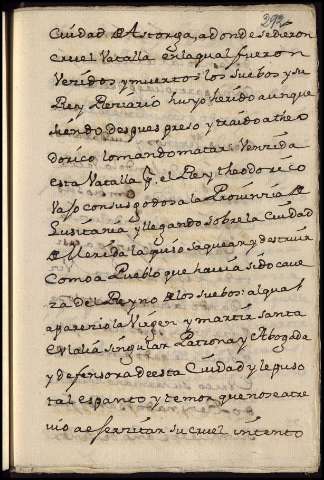 392
Ciudad de Astorga, adonde se dieron
cruel Vatalla en la qual fueron
Venzidos y muertos los suebos y su
Rey Reciario huyo herido aunque
siendo despues preso y traido a theo
dorico lo mando matar. Venzida
esta Vatalla q. el Rey theodorico
Vajo con sus godos a la Provinzia de
Lusitania y llegando sobre la Ciudad
de Merida la quiso saquear y destruir
como a Pueblo que havia sido cave
za del Reyno de los suebos: al qual
aparezio la Virgen y martir santa
Eulalia singular Patrona y Abogada
y defensora de esta Ciudad y le puso
tal espanto y temor que no se atre
vio a egerzitar su cruel intento